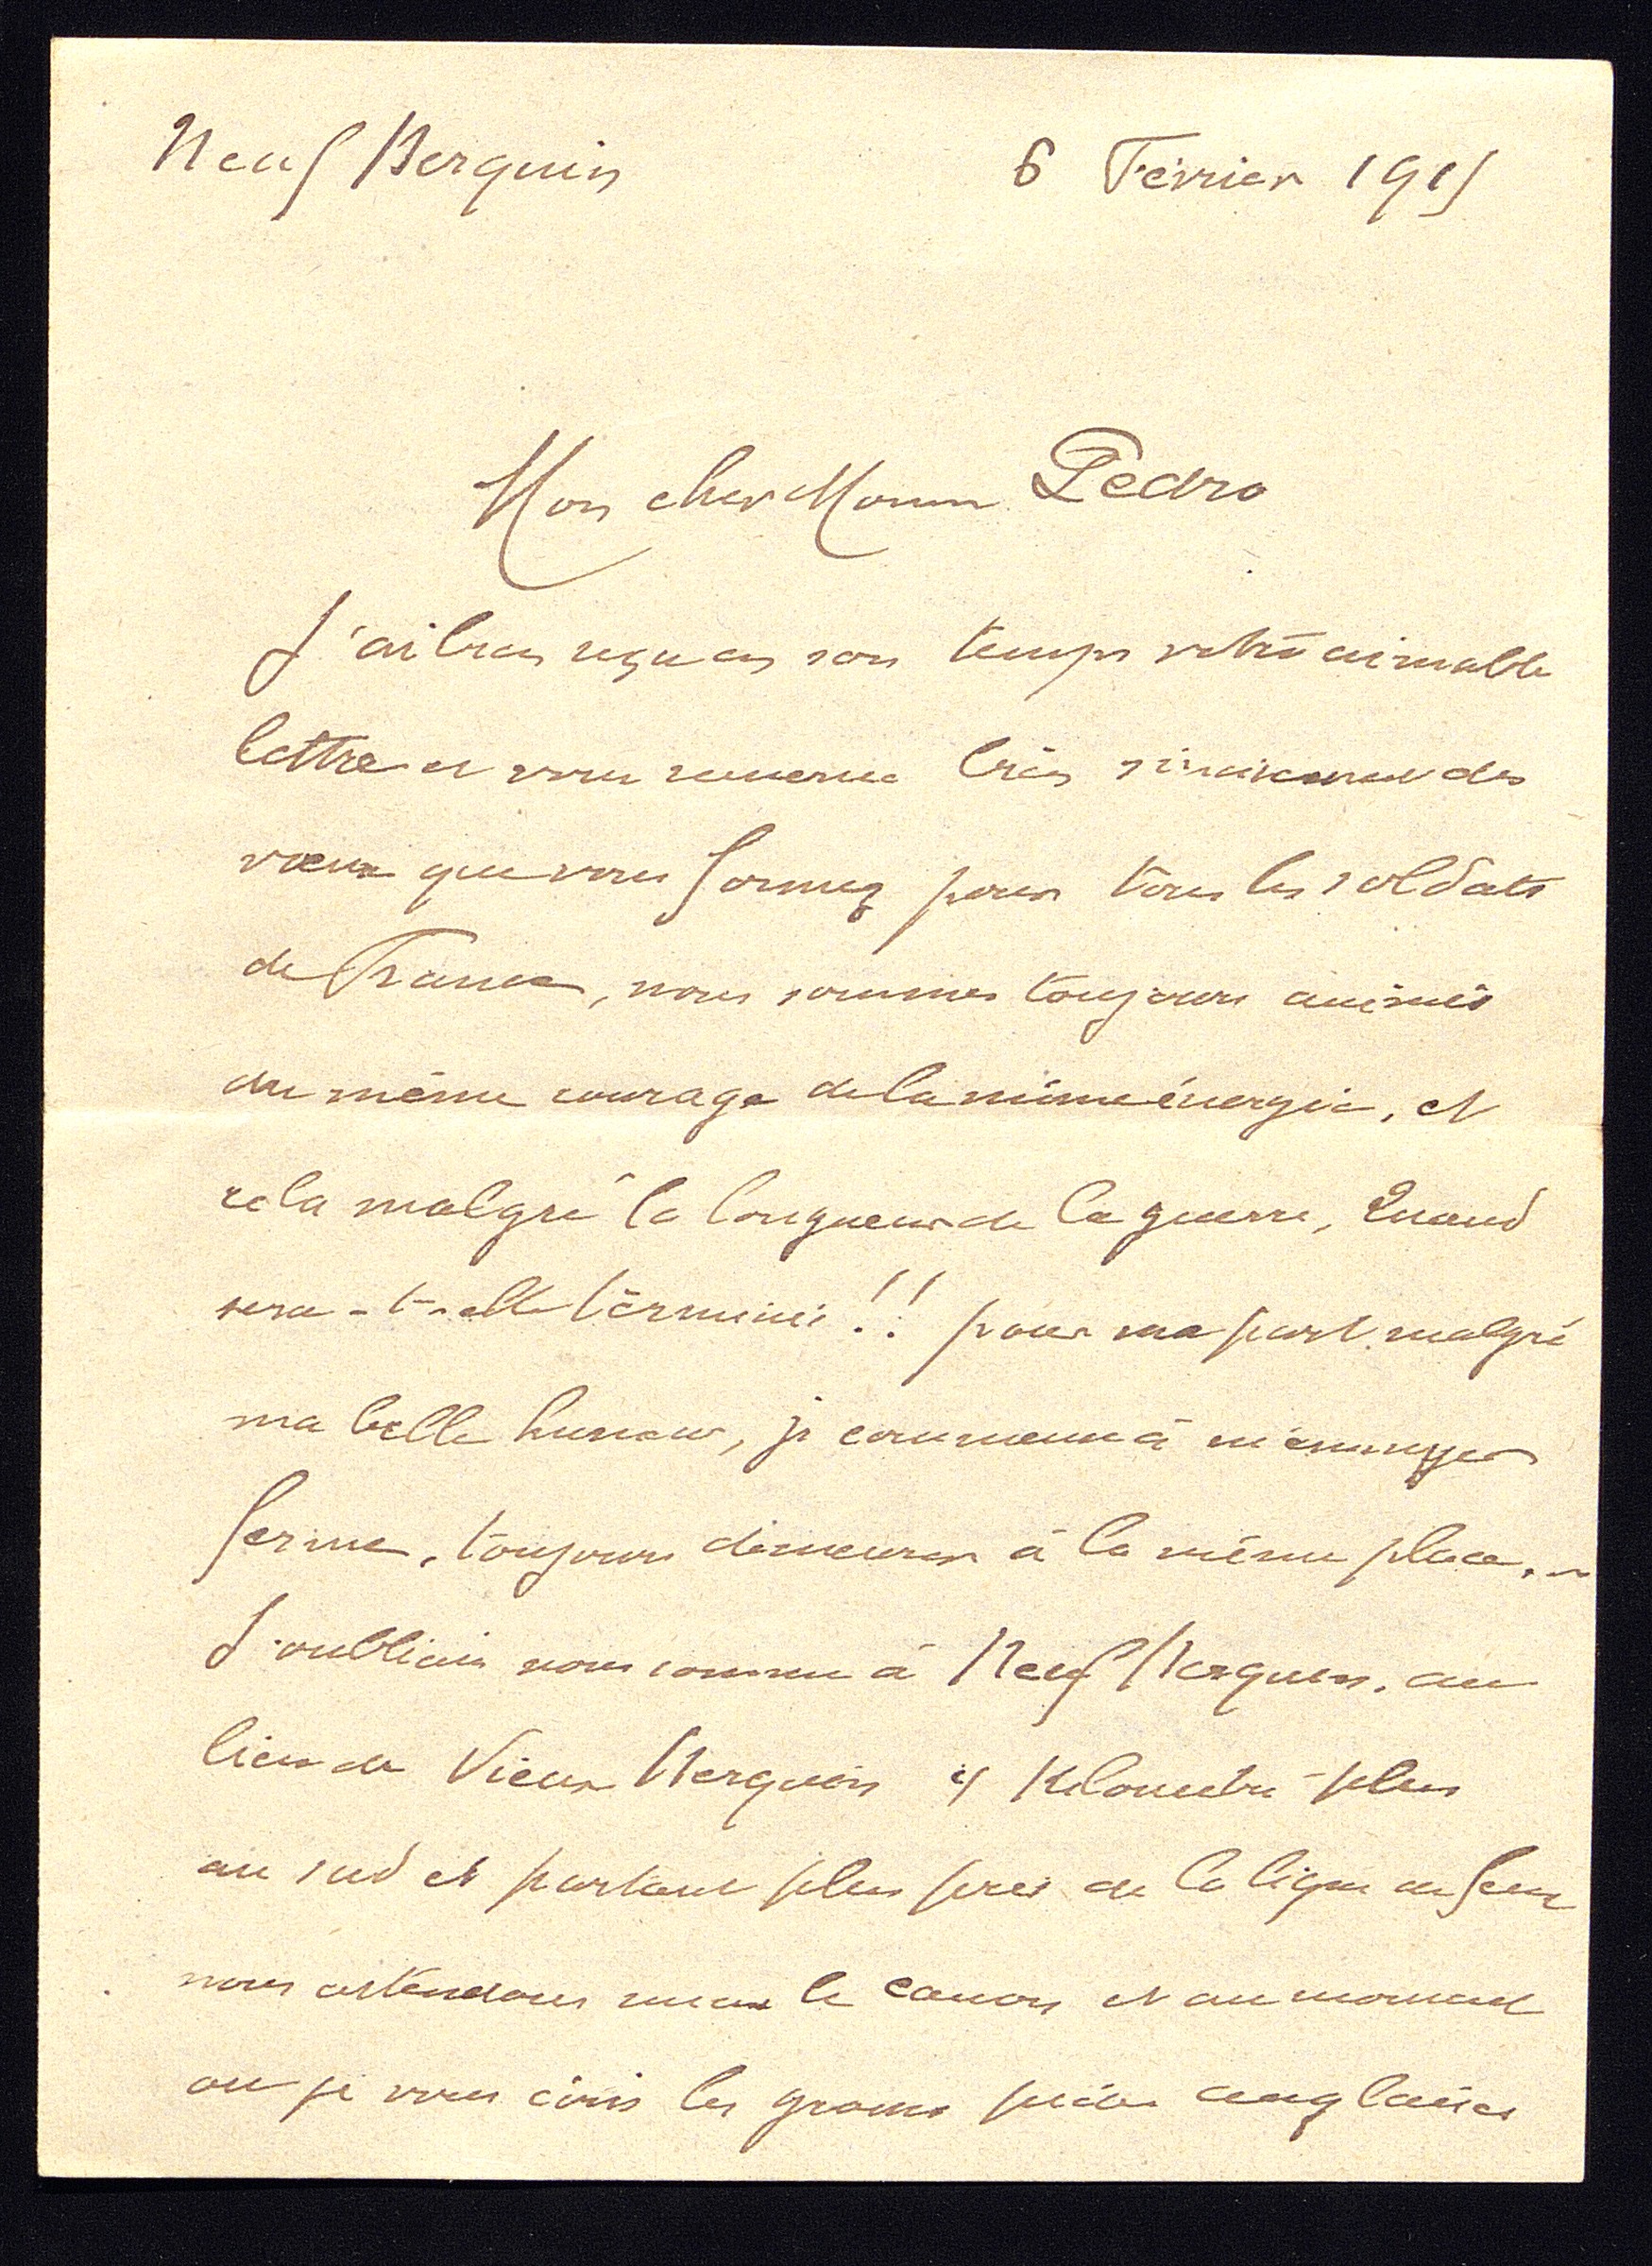 Neuf Berquin 6 Février 1915
Mon cher Pedro
J'ai bien reçu en son temps votre aimable
lettre et vous remercie très sincèrement des
vœux que vous formez pour tous les soldats
de France, nous sommes toujours animés
du même courage de la même énergie, et
cela malgré la longueur de la guerre, Quand
sera-t-elle terminée !! pour ma part malgré
ma belle humeur, je commence à m'ennuyer
ferme, toujours demeurer à la même place,
J'oubliais nous sommes à Neuf Berquin, au
lieu de Vieux Berquin 4 Kilomètre plus
au sud et partant plus près de la ligne de feu
nous entendons mieux le canon et au moment
ou je vous écris les grosses pièces anglaises